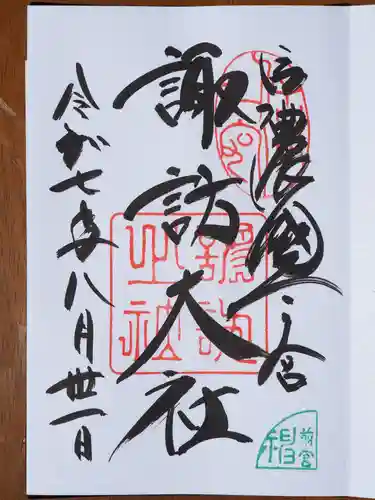 信濃國一之宮
諏訪大社
令和七年八月卅一日
前宮